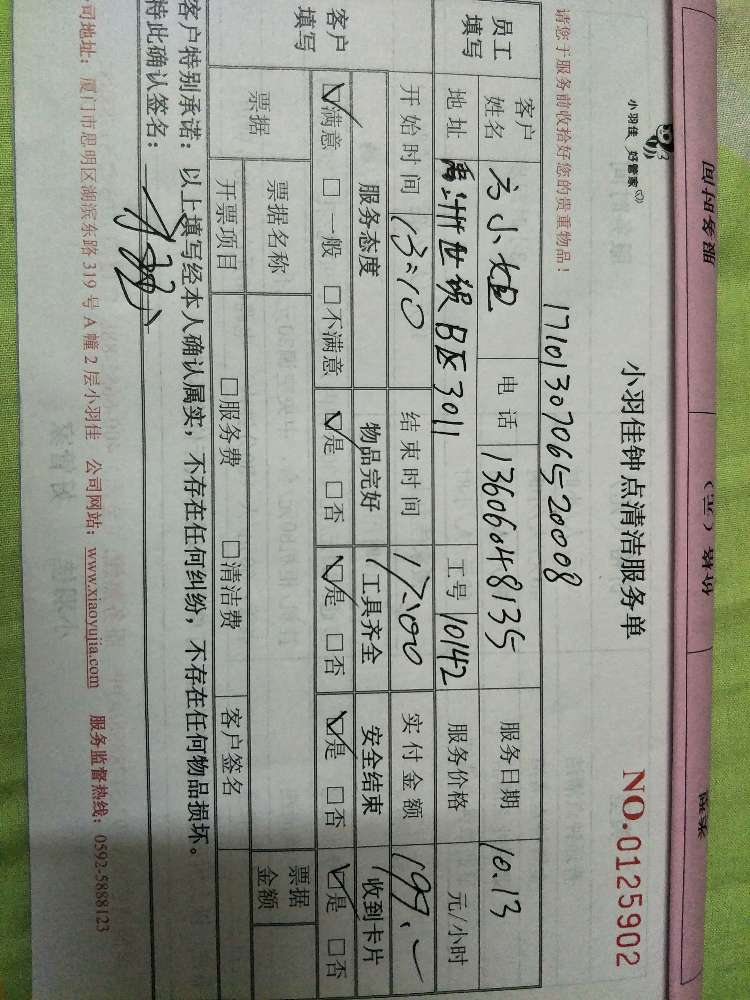 小羽佳 好管家
小羽佳钟点清洁服务单
NO.0125902
请您于服务前收拾好您的贵重物品!
1710130706520008
员工填写
客户姓名 方小姐 电话 13606048135 服务日期 10.13
地址 禹洲世纪B区3011 工号 10142 服务价格 元/小时
开始时间 13:10 结束时间 17:00 实付金额 199.-
客户填写
服务态度 物品完好 工具齐全 安全结束 收到卡片
☑满意 □一般 □不满意 ☑是 □否 ☑是 □否 ☑是 □否 ☑是 □否
票据 票据名称 票据金额
开票项目 □服务费 □清洁费 客户签名
客户特别承诺:以上填写经本人确认属实,不存在任何纠纷,不存在任何物品损坏。
特此确认签名:
司地址:厦门市思明区湖滨东路319号A幢2层小羽佳 公司网站:www.xiaoyujia.com 服务监督热线:0592-5888123